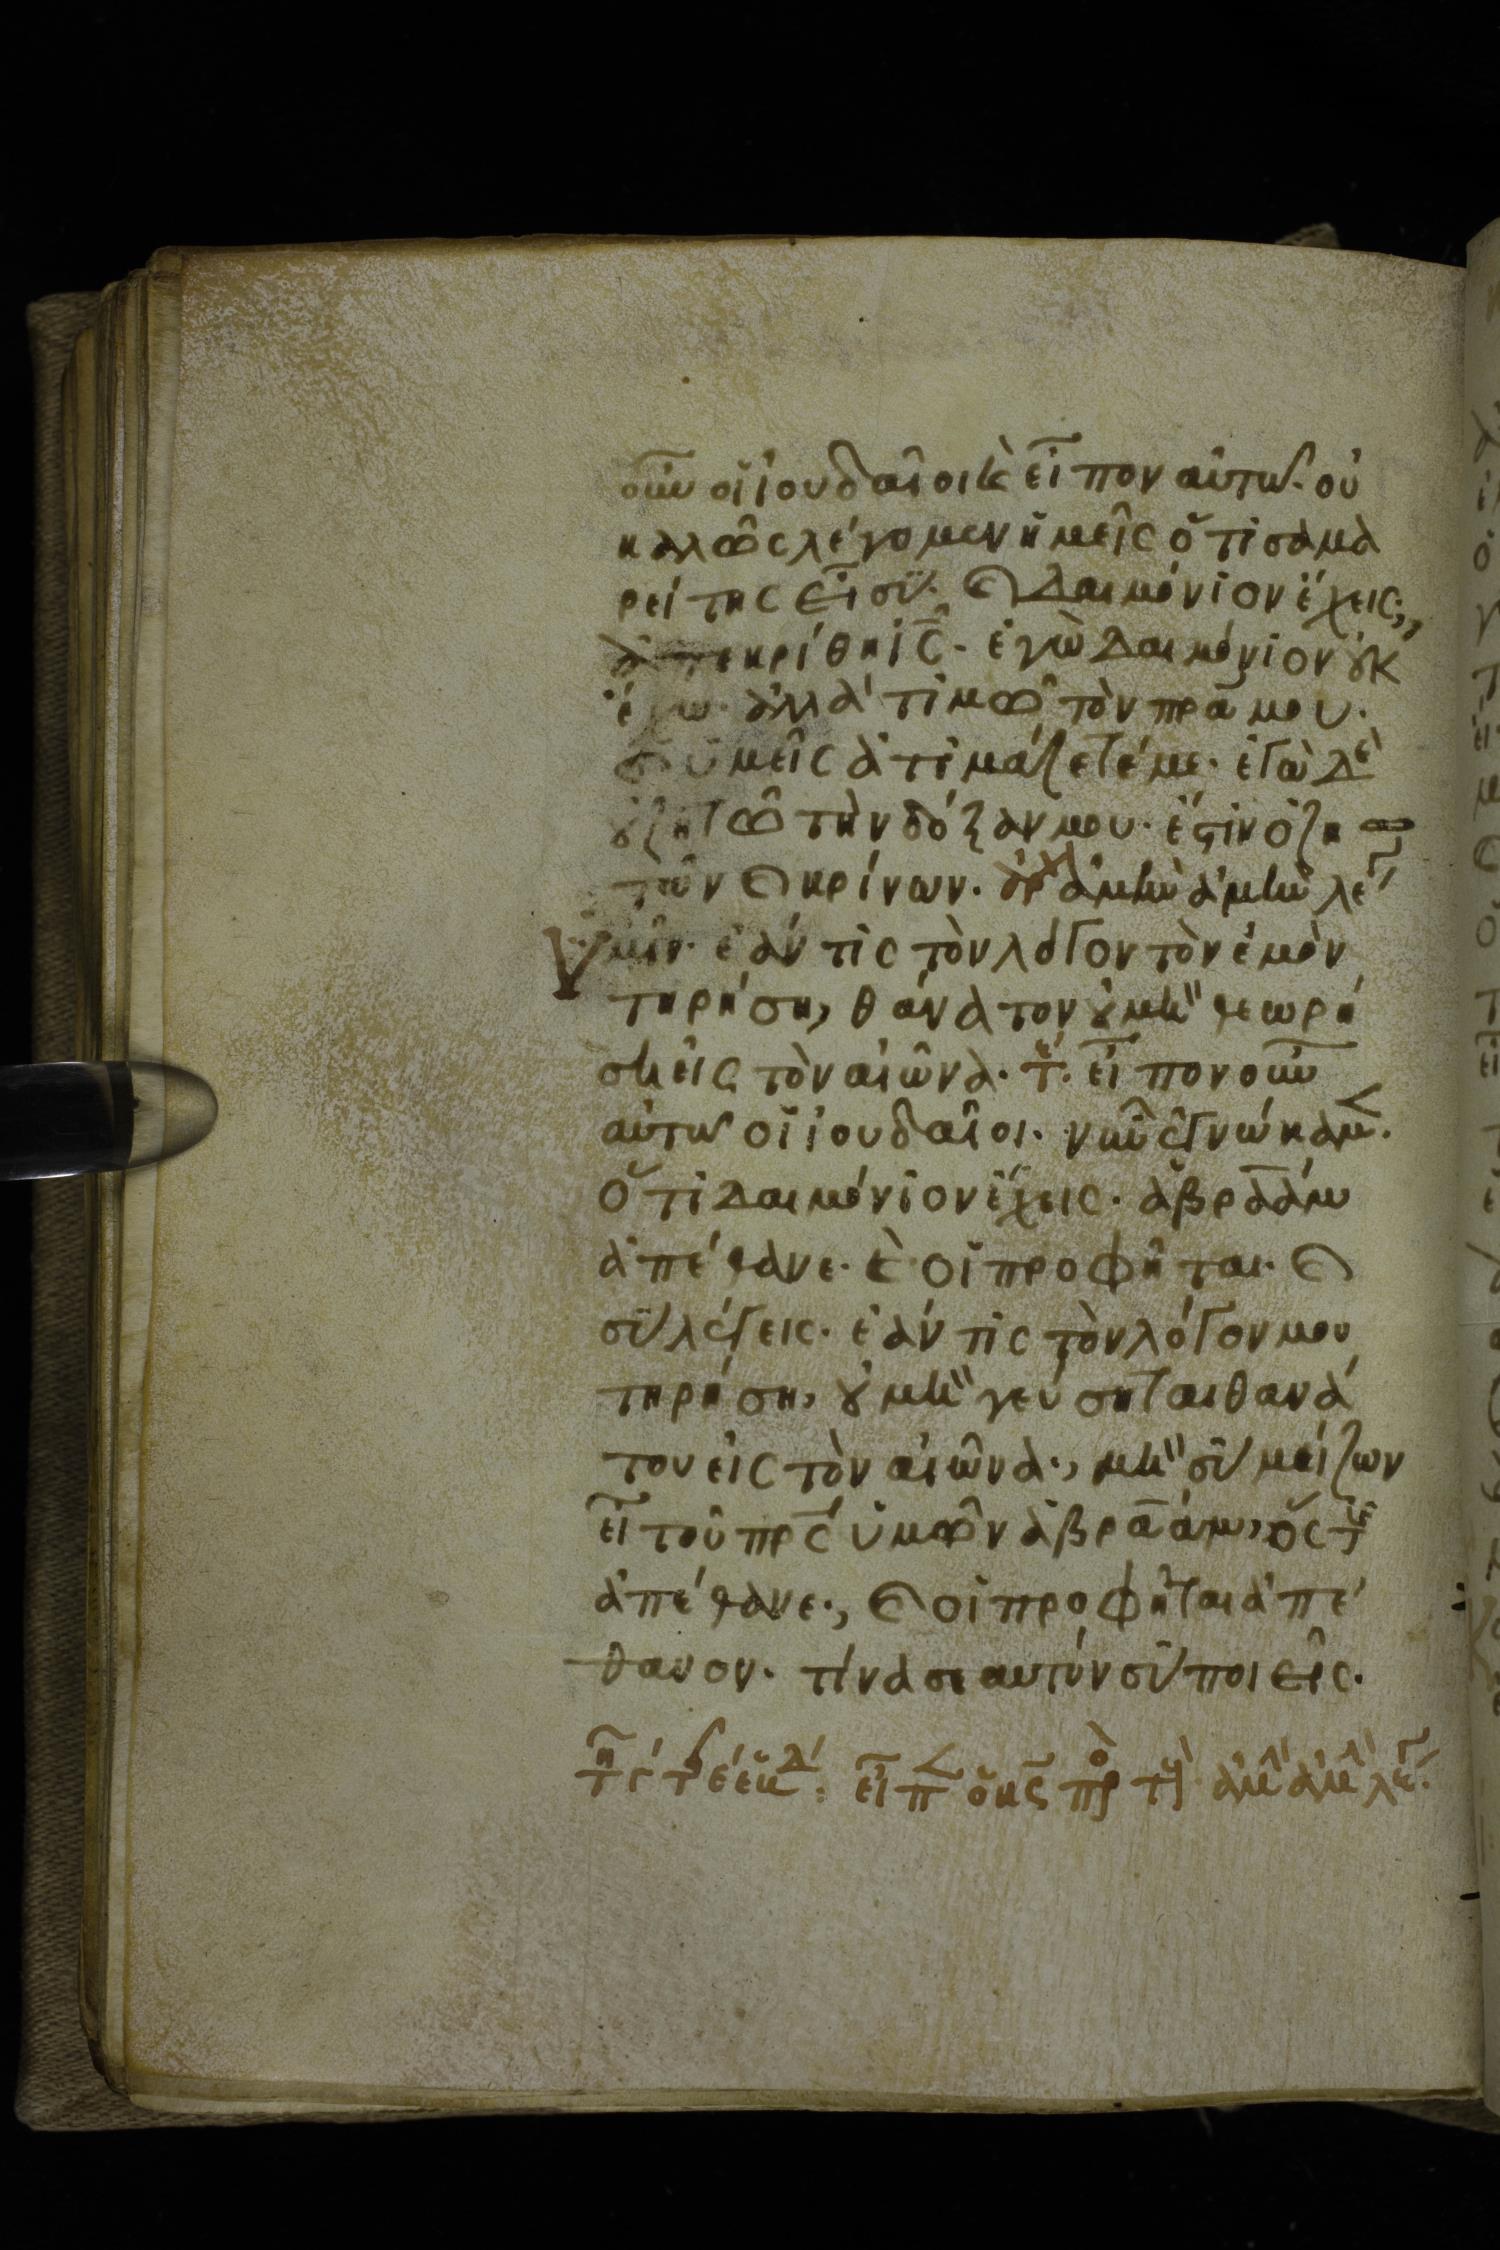 οὖν οἱ ἰουδαῖοι κ̀ εἶπον αὐτῶ· οὐ
καλῶς λέγομεν ἡμεῖς ὅτι σαμα
ρείτης εἶ σὺ· κ̀ δαιμόνιον ἔχεις;,
ἀπεκρίθη ἰ̅ς̅· ἐγὼ δαιμόνιον ȣ̓κ
ἔχω· ἀλλὰ τιμῶ τὸν π̅ρ̅α̅ μου·
κ̀ ὑμεῖς ἀτιμάζετέ με· ἐγὼ δὲ
ȣ̓ ζητῶ τὴν δόξαν μου· ἔστιν ὁ ζη
τῶν κ̀ κρίνων. ἀρχ ἀμὴν ἀμὴν λέγ
ὑμῖν· ἐάν τις τὸν λόγον τὸν ἐμὸν
τηρήση, θάνατον ȣ̓ μὴ θεωρή
ση εἰς τὸν αἰῶνα. τέ. εἶπον οὖν
αὐτῶ οἱ ἰουδαῖοι· νῦν ἐγνώκαμ.
ὅτι δαιμόνιον ἔχεις· ἀβραὰμ
ἀπέθανε· κ̀ οἱ προφῆται· κ̀
σὺ λέγεις· ἐάν τις τὸν λόγον μου
τηρήση, ȣ̓ μὴ γεύσηται θανά
του εἰς τὸν αἰῶνα., μὴ σὺ μείζων
εἶ τοῦ π̅ρ̅ς̅ ὑμῶν ἀβραάμ, ὅς τ
ἀπέθανε., κ̀ οἱ προφῆται ἀπέ
θανον. τίνα σεαυτὸν σὺ ποιεῖς.
εἶπ ὁ κ̅ς̅ πρ τ ἀμ ἀμ λέγ.